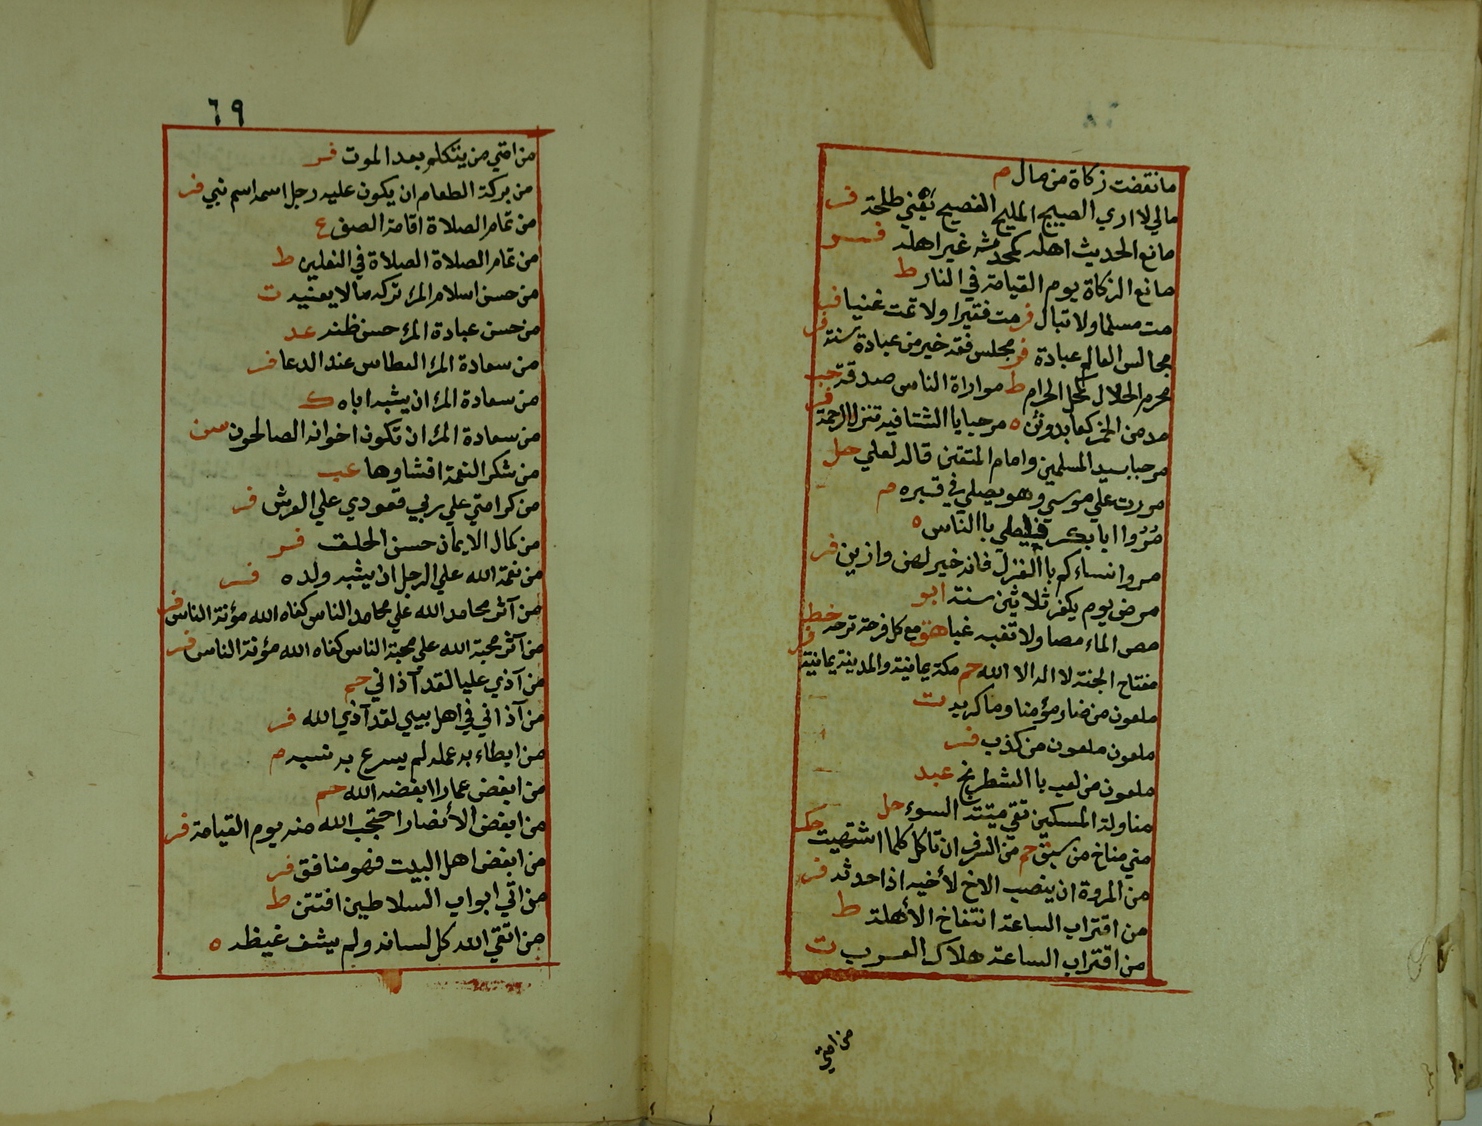 ما نقضت زكاة من مال م
مالي لا اري الصبيح المليح الفصيح يعني طلحة فر
مانع الحديث اهله كمحدثه غير اهله فر
مانع الزكاة يوم القيامة في النار ط
مت مسلما ولا تبال فر مت فقيرا ولا تمت غنيا فر
مجالس العالم عبادة فر مجلس فقه خير من عبادة سنة فر
محرم الحلال كمحل الحرام ط مواراة الناس صدقة حب
مدمن الخمر كعابد وثن ه مرحبا يا الشتا فيه تنزل الرحمة فر
مرحبا بسيد المسلمين وامام المتقين قاله لعلي حل
مررت علي موسي وهو يصلي في قبره م
مُرُوا ابا بكر فليصلي با الناس ه
مروا نساءكم با الغزل فانه خير لهن وازين فر
مرض يوم يكفر ثلاثين سنة ابو
مصوا الماء مصا ولا تعبه غبا هق مع كل فرحة ترحة خط
مفتاح الجنة لا اله الا الله حم مكة يمانية والمدينة يمانية فر
ملعون من ضار مؤمنا وما كربه ت
ملعون ملعون من كذب فر
ملعون من لعب با الشطرنج عبد
مناولة المسكين تقي ميتة السوء حل
مني مناخ من سبق حم من السرف ان تاكل كلما اشتهيت حكـ
من المروة ان ينصت الاخ لأخيه اذا حدثه فر
من اقتراب الساعة انتفاخ الأهلة ط
من اقتراب الساعة هلاك العرب ت
من امتي
٦٩
من امتي من يتكلم بعد الموت فر
من بركة الطعام ان يكون عليه رجل اسمه اسم نبي فر
من تمام الصلاة اقامة الصف ع
من تمام الصلاة الصلاة في النعلين ط
من حسن اسلام المرء تركه مالا يعنيه ت
من حسن عبادة المرء حسن ظنه عد
من سعادة المرء العطاس عند الدعا فر
من سعادة المرء ان يشبه اباه ك
من سعادة المرء ان تكون اخوانه الصالحون
من شكر النعمة افشاوها عب
من كرامتي علي ربي قعودي علي العرش فر
من كمال الايمان حسن الخلق فر
من نعمة الله علي الرجل ان يشبه ولده فر
من آثر محامد الله علي محامد الناس كفاه الله مؤنة الناس فر
من آثر محبة الله علي محبة الناس كفاه الله مؤنة الناس فر
من آذي عليا لقد آذاني حم
من آذاني في اهل بيتي لقد آذي الله فر
من ابطاء به عمله لم يسرع به نسبه م
من ابغض عمارا ابغضه الله حم
من ابغض الأنصار احتجب الله منه يوم القيامة فر
من ابغض اهل البيت فهو منافق فر
من اتي ابواب السلاطين افتتن ط
من اتقي الله كل لسانه ولم يشف غيظه ه